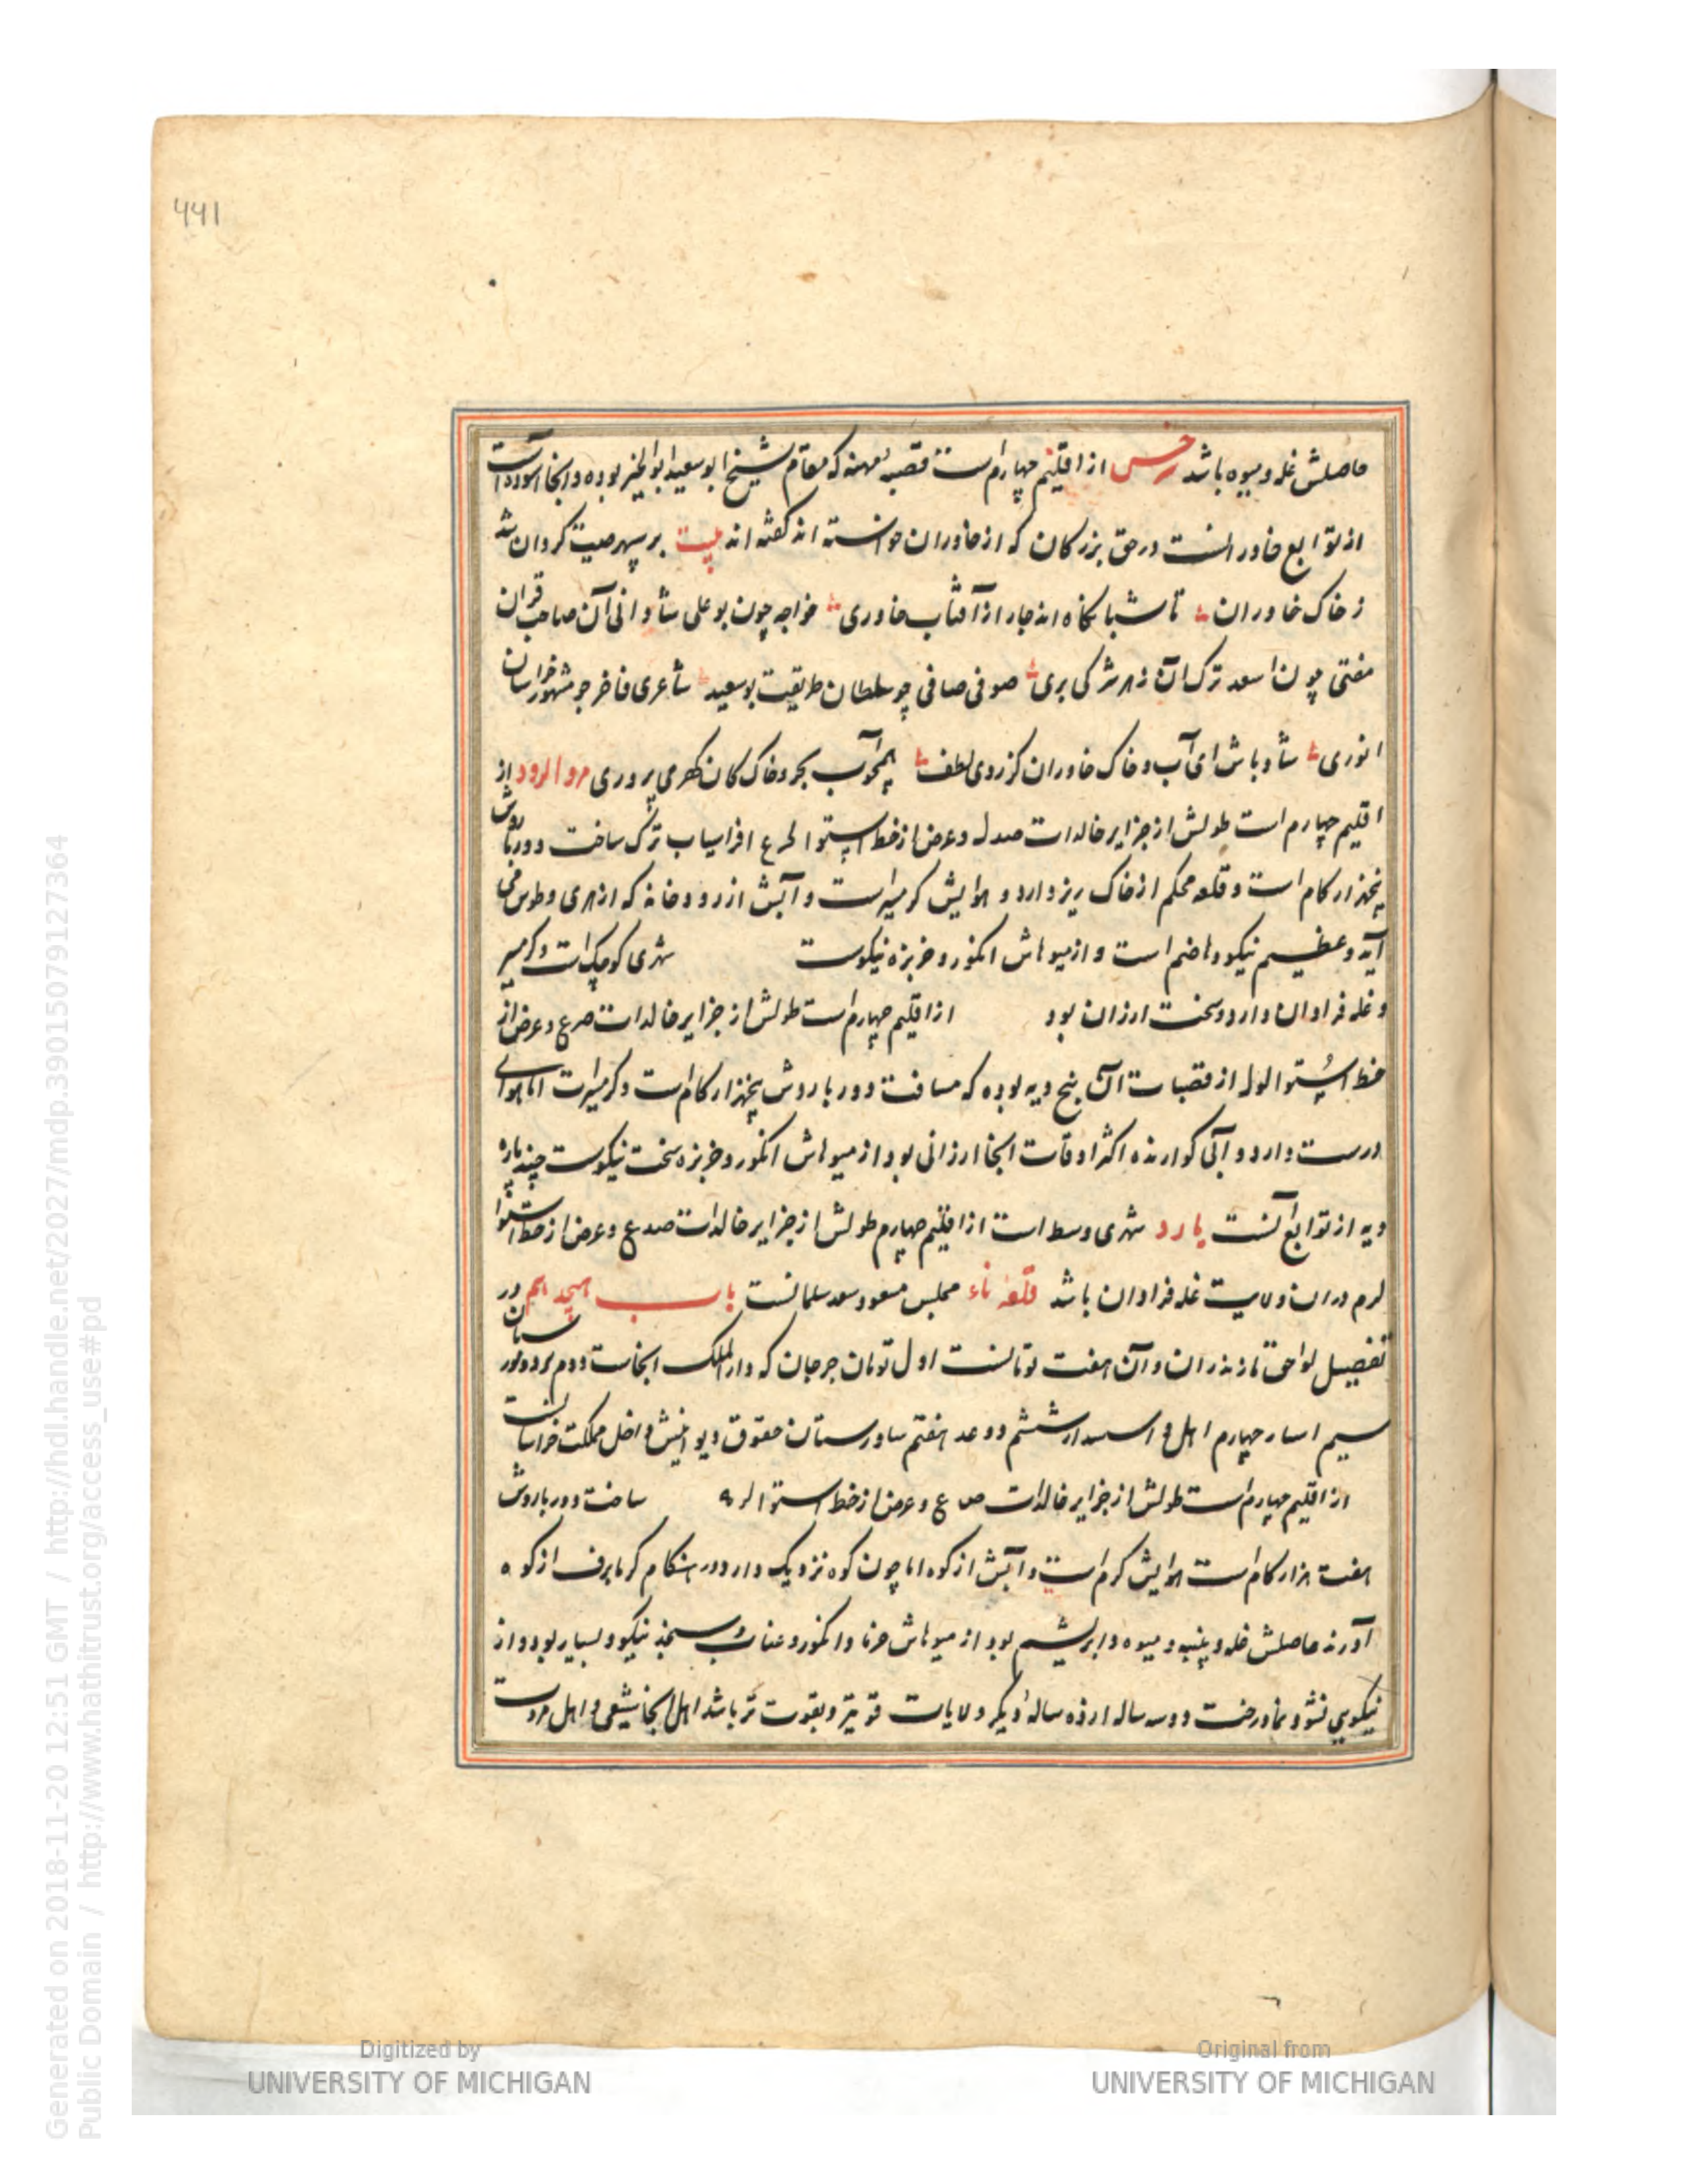 441
حاصلش غله و میوه باشد سرخس از اقلیم چهارم است قصبه مهمنه که مقام شیخ ابوسعید ابوالخیر بوده و آنجا آسوده است
از توابع خاورانست در حق بزرکان که از خاوران خواسته اند کفته اند بیت بر سپهر صیت کردان شد
ز خاک خاوران تا شبانکاه اند چار از آفتاب خاوری خواجه چون بوعلی شادانی آن صاحب قران
مفتی چون اسعد ترک آن زهر شرکی بری صوفی صافی چو سلطان طریقت بوسعید شاعری فاخر چو مشهور خراسان
انوری شاد باش ای آب و خاک خاوران کز روی لطف همچو آب بحر و خاک کان کهر می پروری مرو الرود از
اقلیم چهارم است طولش از جزایر خالدات صدل و عرض از خط استوا لرع افراسیاب ترک ساخت دور باروش
پنجهزار کام است و قلعه محکم از خاک ریز دارد و هوایش کرمسیر است و آبش از رودخانه که از هری و طوس می
آید و عظیم نیکو و هاضم است و از میوهاش انکور و خربزه نیکوست شهری کوچک است و کرمسیر
و غله فراوان دارد و سخت ارزان بود از اقلیم چهارم است طولش از جزایر خالدات صرع و عرض از
خط استوا لول از قصبات آن پنج دیه بوده که مسافت دور باروش پنجهزار کام است و کرمسیرات اما هوای
درست دارد و آبی کوارنده اکثر اوقات آنجا ارزانی بود از میوهاش انکور و خربزه سخت نیکوست چند پاره
دیه از توابع آنست یارد شهری وسط است از اقلیم چهارم طولش از جزایر خالدات صدع و عرض از خط استوا
لرم در ان ولایت غله فراوان باشد قلعه ناء مجلس مسعود سعد سلمانست باب هیجدهم در
تفصیل لواحق مازندران و آن هفت تومانست اول تومان جرجان که دارالملک آنجاست دوم
سیم چهارم ششم هفتم حقوق دیوانیش داخل مملکت خراسانست
از اقلیم چهارم است طولش از جزایر خالدات ص ع و عرض از خط استوا ساخت دور باروش
هفت هزار کام است هوایش کرم است و آبش از کوه اما چون کوه نزدیک دارد در هنکام کرما برف از کوه
آورند حاصلش غله و پنبه و میوه و ابریشم بود از میوهاش خرما و انکور و عناب و سنجد نیکو و بسیار بود و از
نیکویی نشو و نما درخت دو سه ساله از ده ساله دیکر ولایات قوی تر و بقوت تر باشد اهل آنجا شیعی و اهل مروت
Digitized by UNIVERSITY OF MICHIGAN
Original from UNIVERSITY OF MICHIGAN
Generated on 2018-11-20 12:51 GMT / http://hdl.handle.net/2027/mdp.39015079127364
Public Domain / http://www.hathitrust.org/access_use#pd